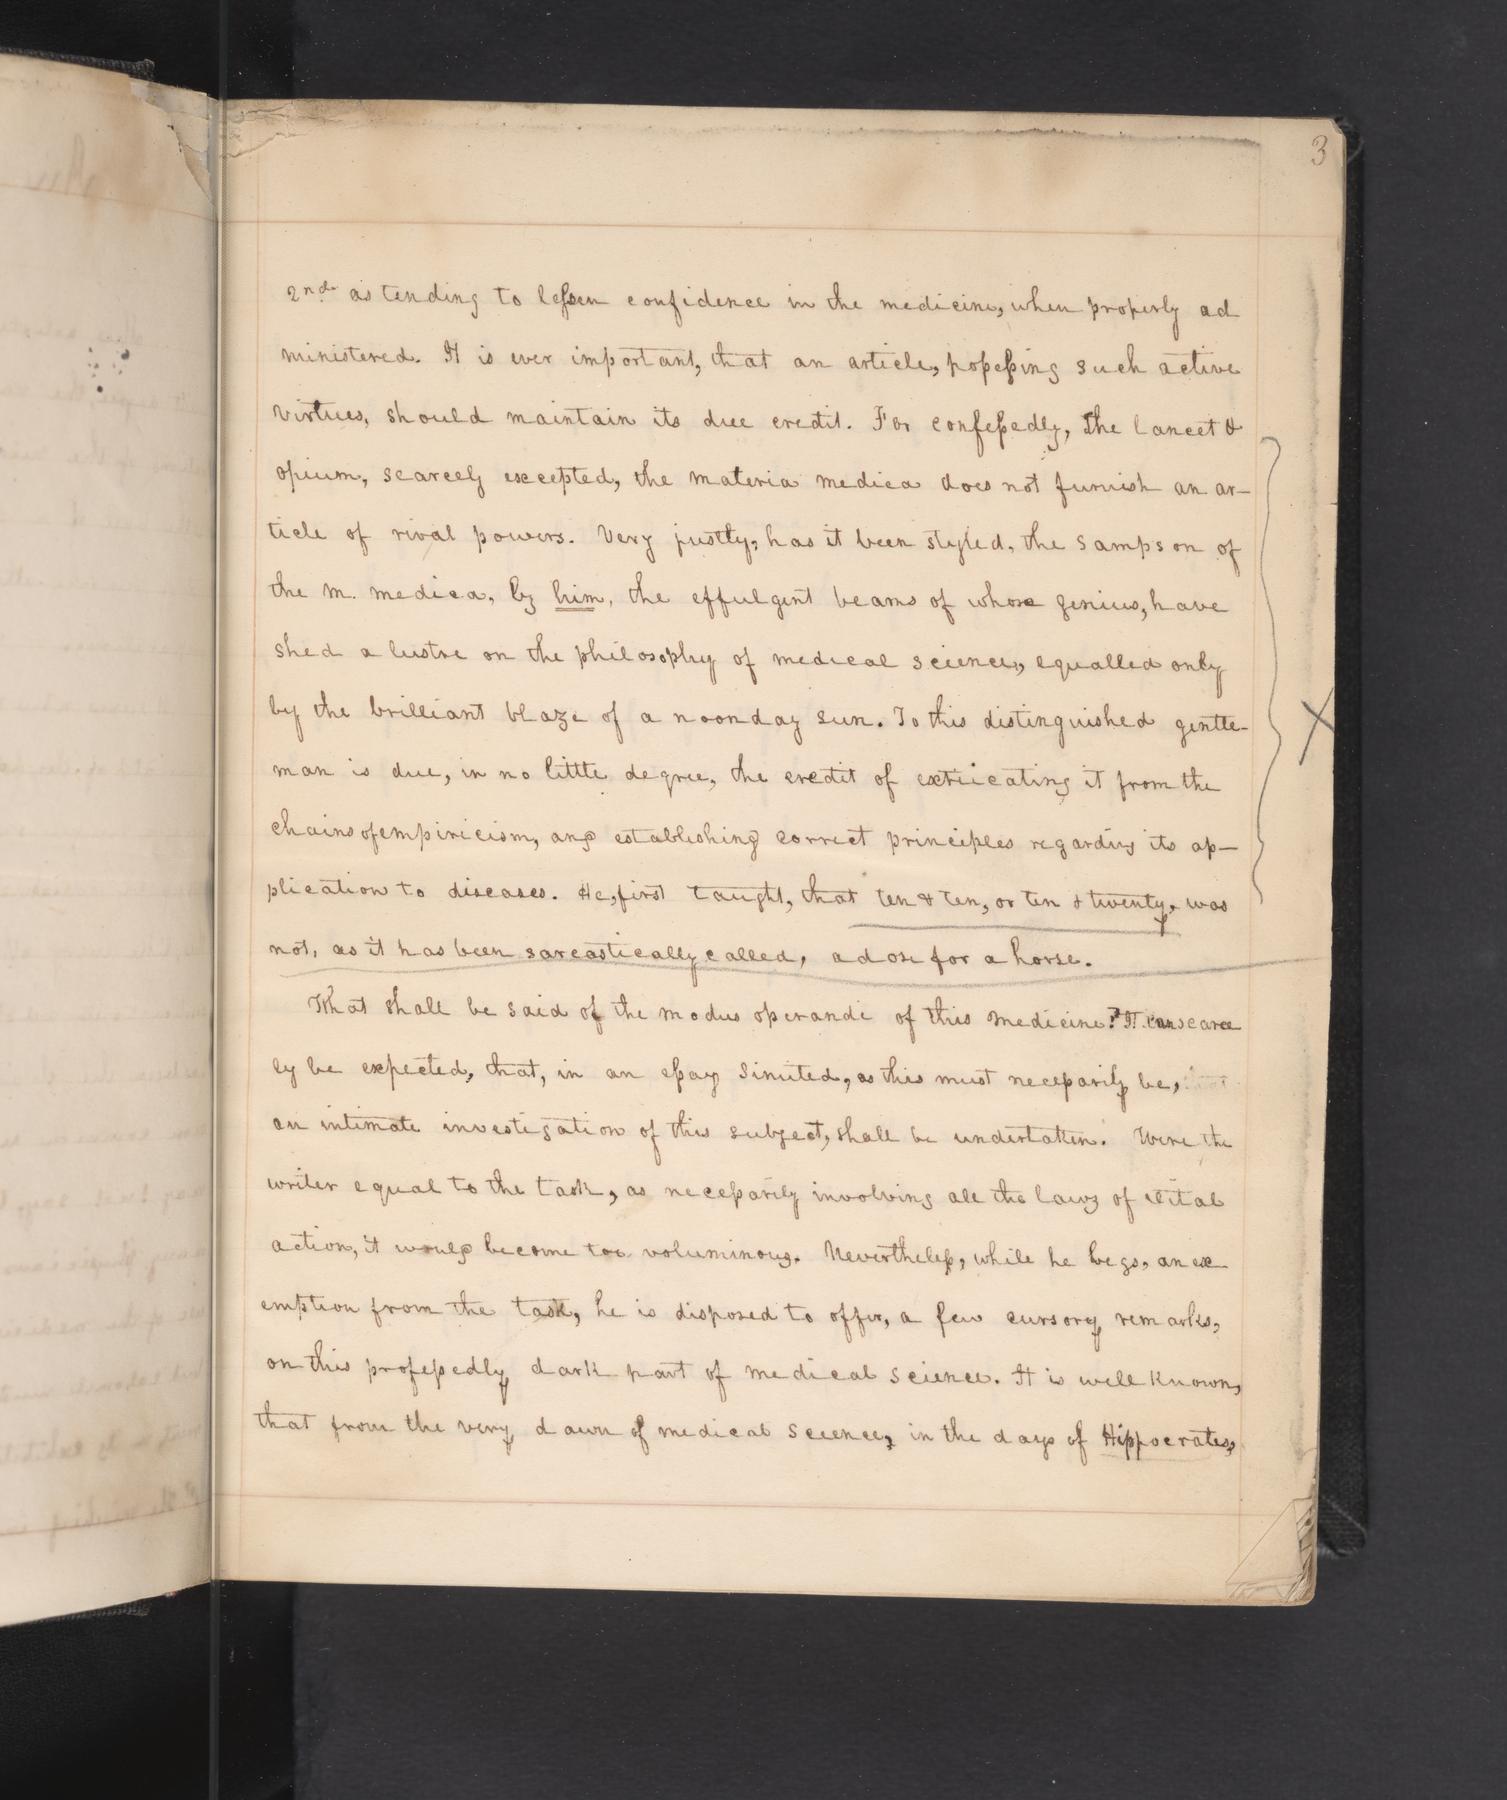 3
2nd as tending to lessen confidence in the medicine, when properly ad
ministered. It is ever important, that an article, possessing such active
virtues, should maintain its due credit. For confessedly, the lancet &
opium, scarcely excepted, the materia medica does not furnish an ar-
ticle of rival powers. Very justly, has it been styled, the Sampson of
the M. medica, by him, the effulgent beams of whose genius, have
shed a lustre on the philosophy of medical science, equalled only
by the brilliant blaze of a noonday sun. To this distinguished gentle-
man is due, in no little degree, the credit of extricating it from the
chains of empiricism, and establishing correct principles regarding its ap-
plication to diseases. He, first taught, that ten & ten, or ten & twenty, was
not, as it has been sarcastically called, a dose for a horse.
What shall be said of the modus operandi of this medicine? It can scarce
ly be expected, that, in an essay limited, as this must necessarily be,
an intimate investigation of this subject, shall be undertaken. Were the
writer equal to the task, as necessarily involving all the laws of vital
action, it would become too voluminous. Nevertheless, while he begs, an ex
emption from the task, he is disposed to offer, a few cursory remarks,
on this professedly dark part of medical science. It is well known,
that from the very dawn of medical science, in the days of Hippocrates,